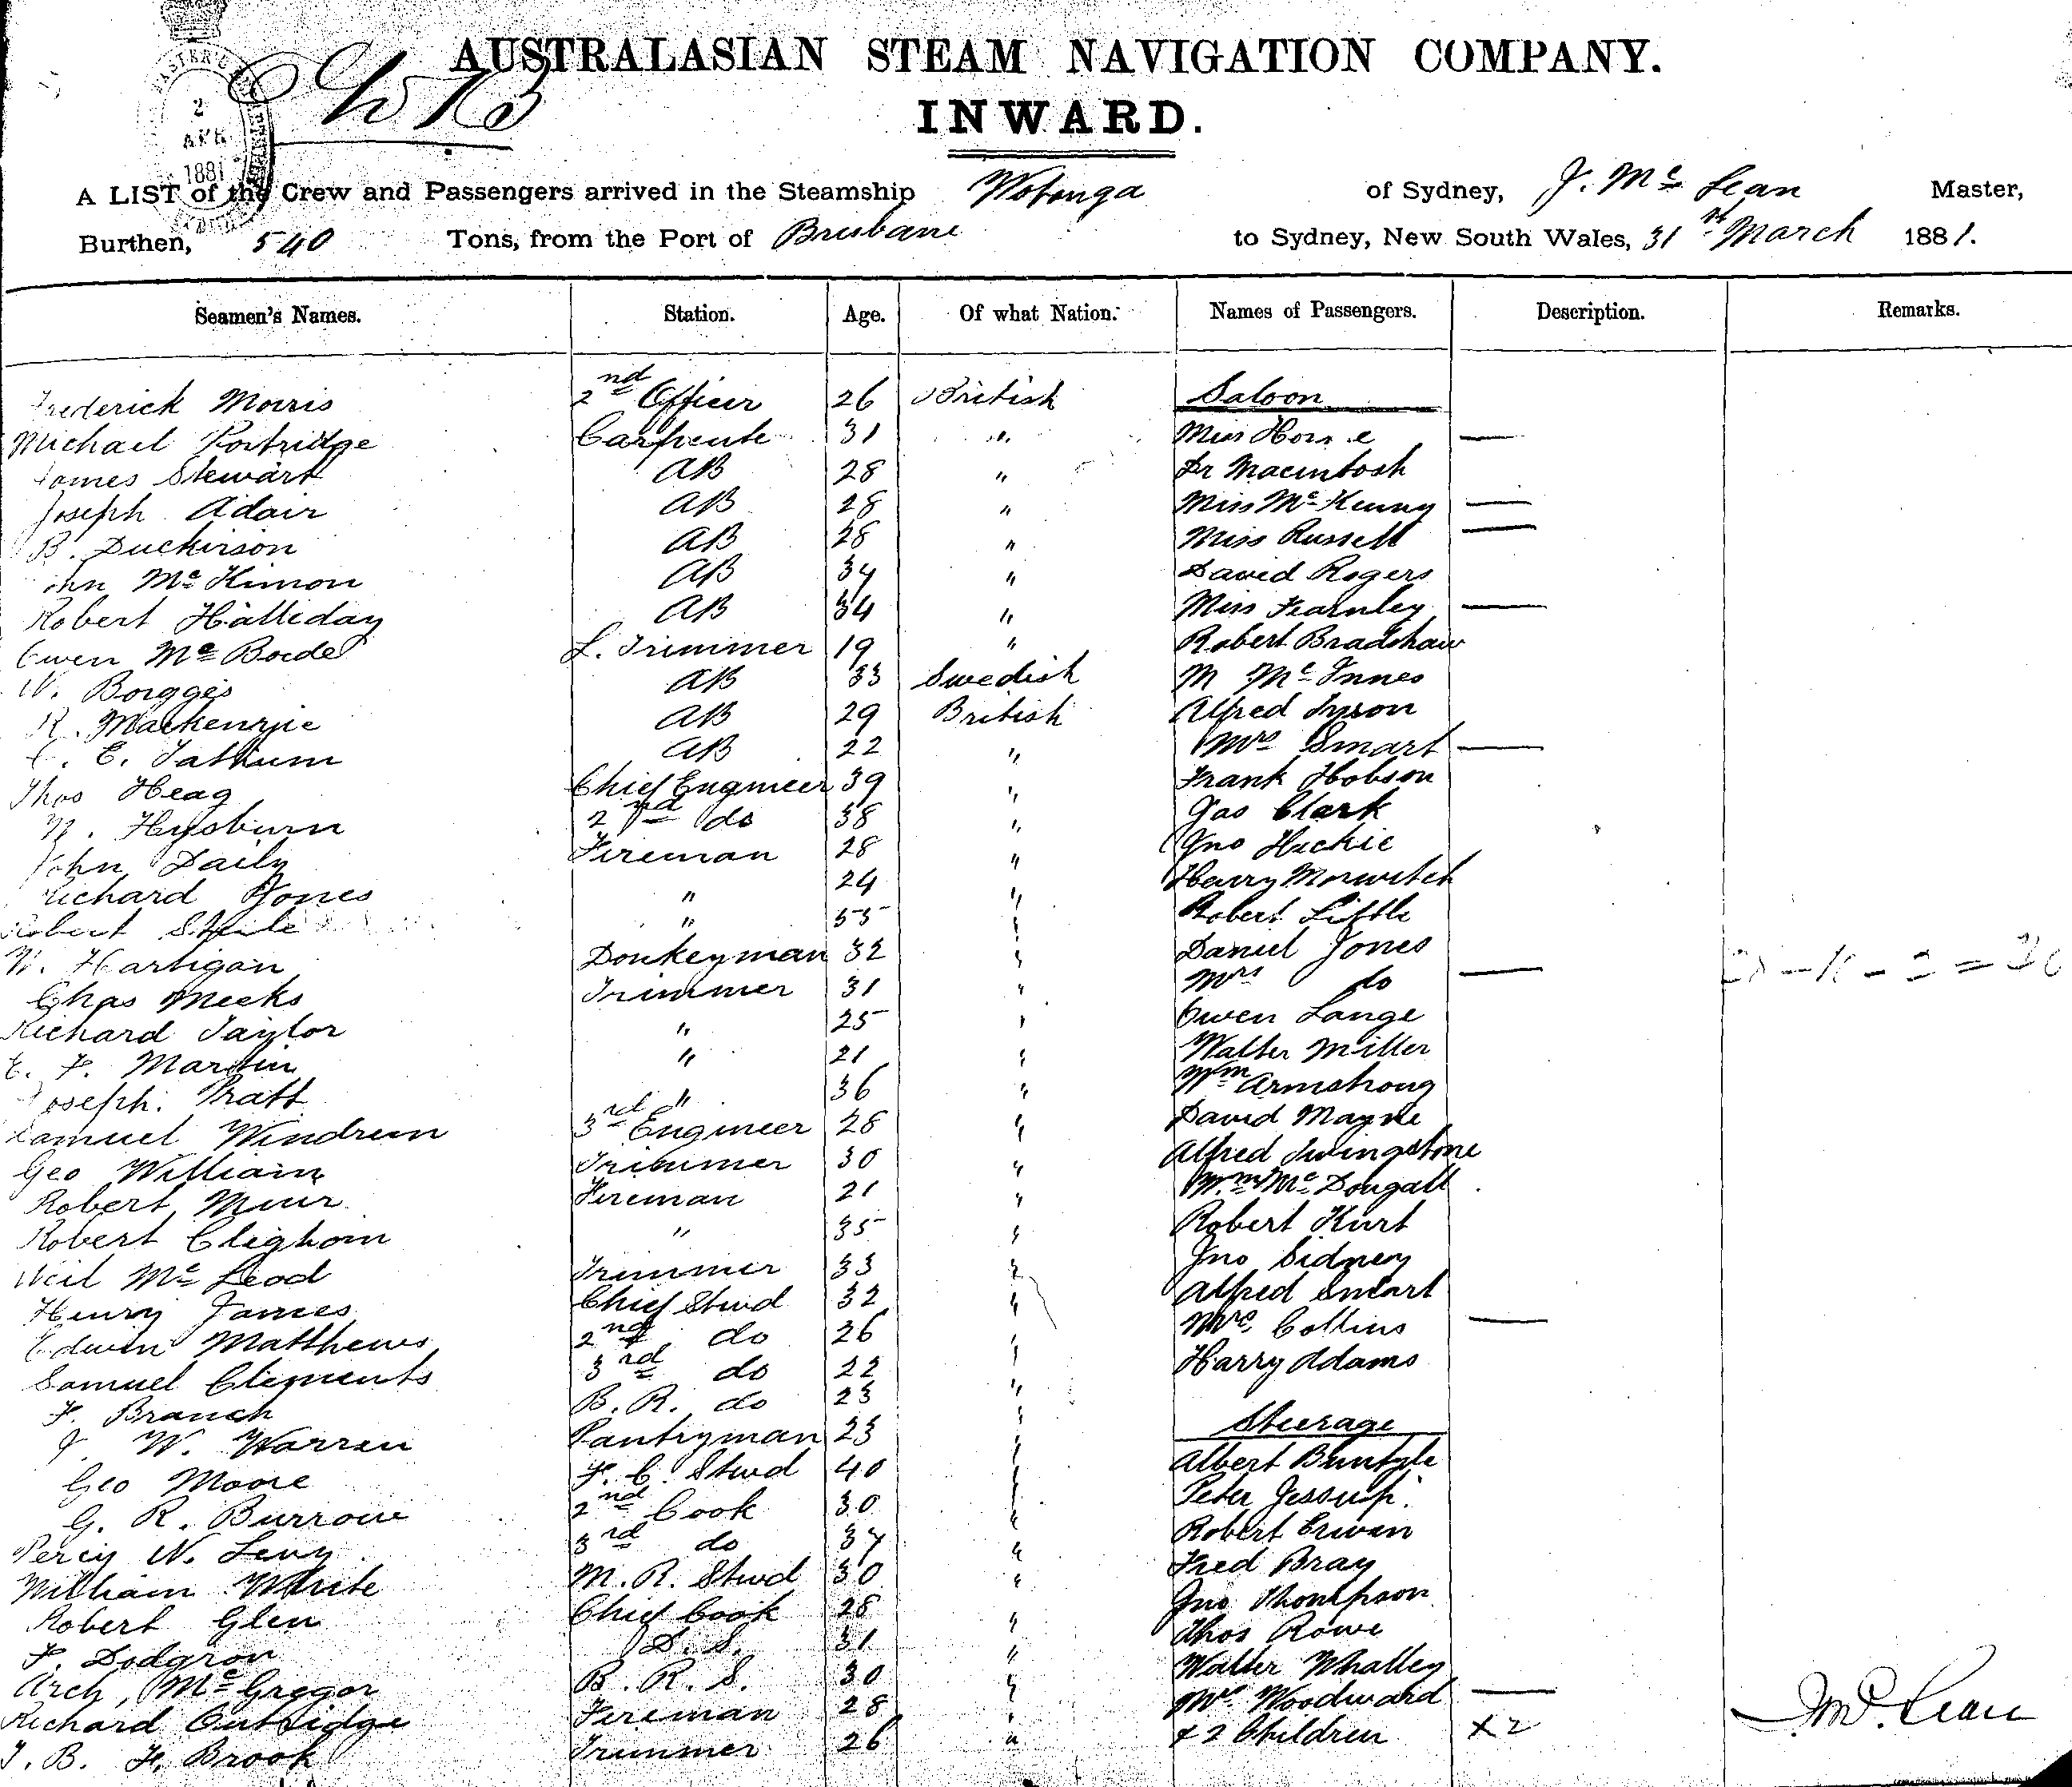 AUSTRALASIAN STEAM NAVIGATION COMPANY.
INWARD.
2
APR
1881
A LIST of the Crew and Passengers arrived in the Steamship Wotonga of Sydney, J. Mc Lean Master,
Burthen, 540 Tons, from the Port of Brisbane to Sydney, New South Wales, 31st March 1881.
Seamen's Names. Station. Age. Of what Nation. Names of Passengers. Description. Remarks.
Frederick Morris 2nd Officer 26 British Saloon
Michael Portridge Carpente 31 " Miss —
James Stewart AB 28 " Dr Macintosh
Joseph Adair AB 28 " Miss Mc Kenny —
B. Duckirson AB 28 " Miss Russell —
John Mc Kimon AB 34 " David Rogers
Robert Halliday AB 34 " Miss Fearnley —
Owen Mc Bordel L. Trimmer 19 " Robert Bradshaw
W. Borgges AB 33 Swedish M Mc Innes
R. Mackenzie AB 29 British Alfred Tyson
E. Tathum AB 22 " Mrs Smart —
Thos Heag Chief Engineer 39 " Frank Hobson
Hysburn 2nd do 38 " Jas Clark
John Daily Fireman 28 " Jno Hickie
Richard Jones " 24 " Harry Morwitch
Robert " 55 " Robert Little
W. Hartigan Donkeyman 32 " Daniel Jones
Chas Meeks Trimmer 31 " Mrs do —
Richard Taylor " 25 " Owen Lange
E. F. Martin " 21 " Walter Miller
Joseph Pratt " 36 " Wm Armstrong
Samuel Windrum 3rd Engineer 28 " David Mayne
Geo William Trimmer 30 " Alfred Livingstone
Robert Muir Fireman 21 " Wm Mc Dougall
Robert Cleghorn " 35 " Robert Kurt
Neil Mc Leod Trimmer 33 " Jno Sidney
Henry James Chief Stwd 32 " Alfred Smart
Edwin Matthews 2nd do 26 " Mrs Collins —
Samuel Clements 3rd do 22 " Harry Adams
F. Branch B. R. do 23 "
J. W. Warren Pantryman 23 " Steerage
Geo Moore F. C. Stwd 40 " Albert
G. R. Burrows 2nd Cook 30 " Peter Jessup
Percy W. Levy 3rd do 37 " Robert Erwin
William White M. R. Stwd 30 " Fred Bray
Robert Glen Chief Cook 28 " Jno Thompson
F. Dodgson S. S. 31 " Thos Rowe
Arch, Mc Gregor B. R. S. 30 " Walter Whalley
Richard Outridge Fireman 28 " Mrs Woodward —
J. B. H. Brook Trimmer 26 " & 2 Children x 2
J Mc Lean